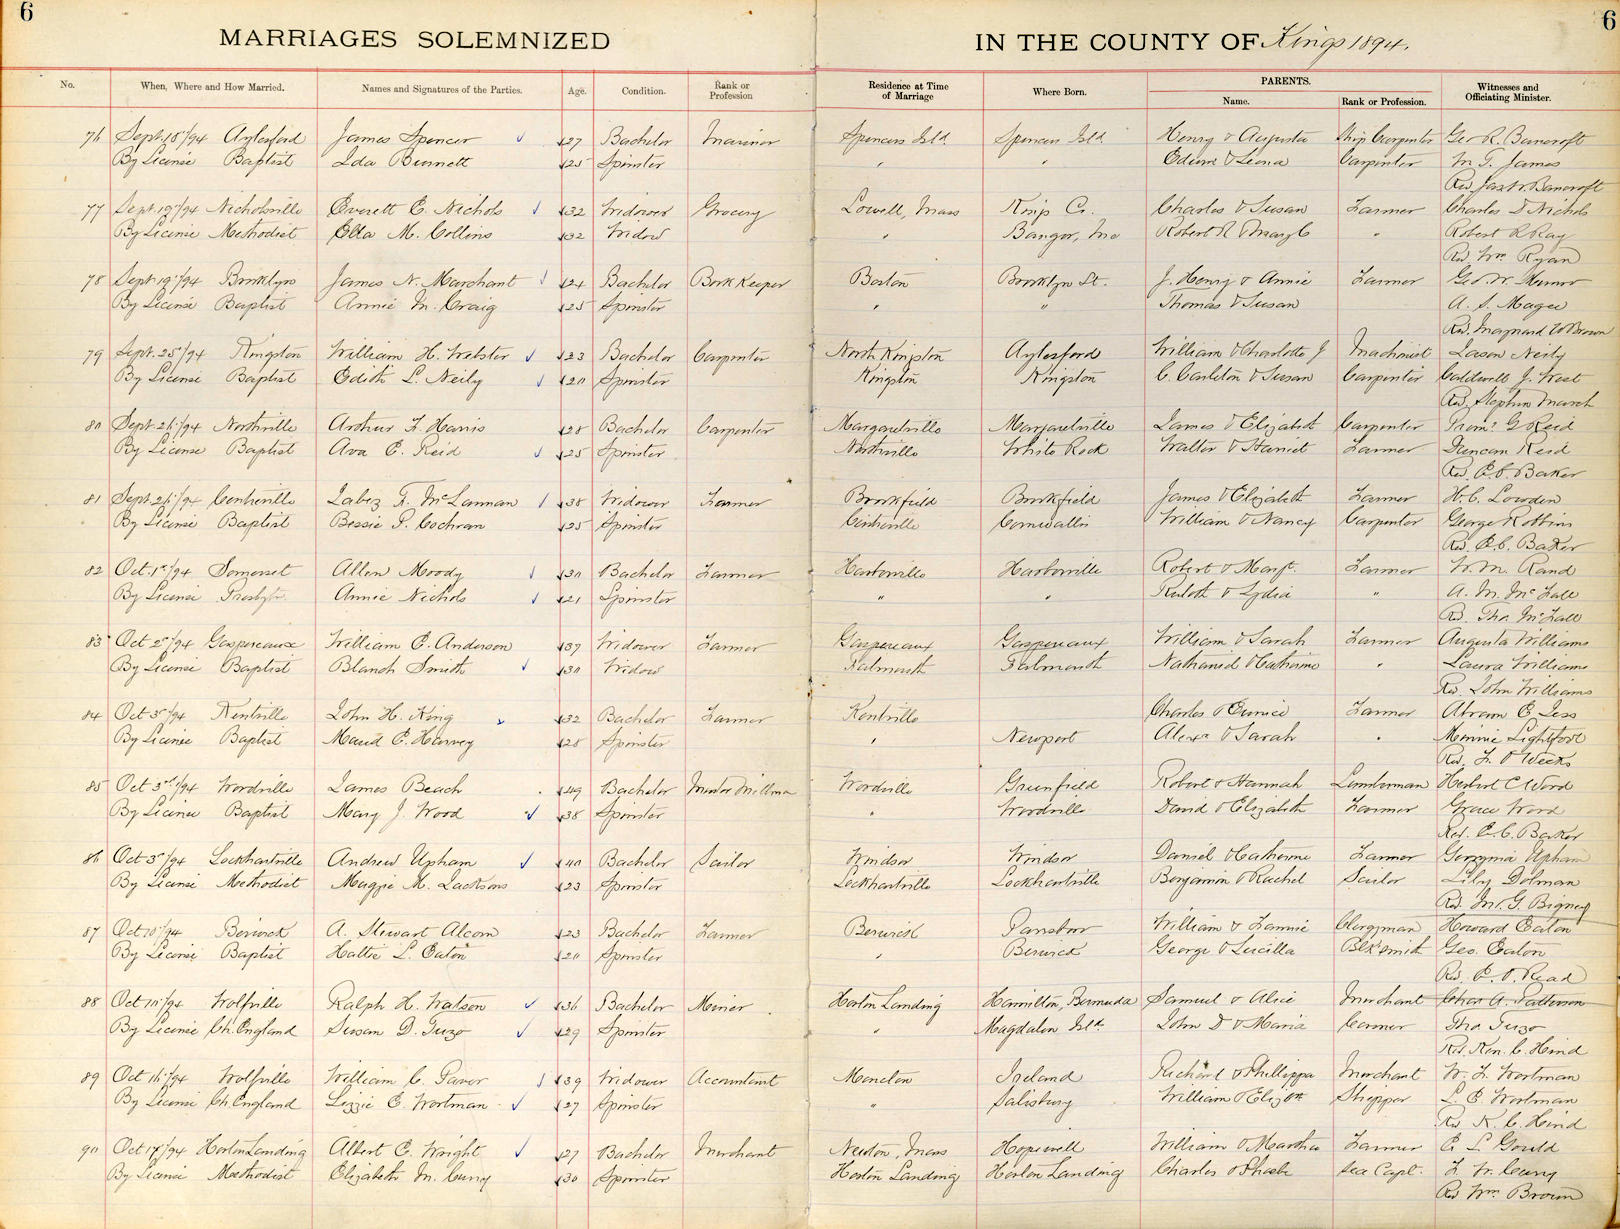 6
6
MARRIAGES SOLEMNIZED
IN THE COUNTY OF Kings 1894.
No. When, Where and How Married. Names and Signatures of the Parties. Age. Condition. Rank or Profession Residence at Time of Marriage Where Born. PARENTS. Name. Rank or Profession. Witnesses and Officiating Minister.
76 Sept. 18/94 Aylesford James Spencer 27 Bachelor Mariner Spencers Isld. Spencers Isld. Henry & Augusta Ship Carpenter Geo R. Bancroft
By License Baptist Ida Bennett 25 Spinster " " & Leona Carpenter M. T. James
Rev. Jas W. Bancroft
77 Sept. 19/94 Nicholsville Everett E. Nichols 32 Widower Grocery Lowell, Mass Kings Co. Charles & Susan Farmer Charles D Nichols
By License Methodist Etta M. Collins 32 Widow " Bangor, Me Robert R & Mary C " Robert R Ray
Rev. Wm Ryan
78 Sept. 19/94 Brooklyn James N. Marchant 24 Bachelor Book Keeper Boston Brooklyn St. J. Henry & Annie Farmer Geo. W.
By License Baptist Annie M. Craig 25 Spinster " " Thomas & Susan A. S. Magee
Rev. Maynard W Brown
79 Sept. 25/94 Kingston William H. Webster 23 Bachelor Carpenter North Kingston Aylesford William & Charlotte J Machinist Jason Neily
By License Baptist Edith L. Neily 20 Spinster Kingston Kingston C. Carlton & Susan Carpenter Caldwell J. West
Rev. Stephen March
80 Sept. 26/94 Northville Arthur F. Harris 28 Bachelor Carpenter Margaretville Margaretville James & Elizabeth Carpenter G Reid
By License Baptist Ava E. Reid 25 Spinster Northville White Rock Walter & Harriet Farmer Duncan Reid
Rev. E. C. Baker
81 Sept. 26/94 Centreville Jabez F. McLannan 38 Widower Farmer Brookfield Brookfield James & Elizabeth Farmer H. C. Lowden
By License Baptist Bessie P. Cochran 25 Spinster Centreville Cornwallis William & Nancy Carpenter George Robbins
Rev. E. C. Baker
82 Oct. 1st/94 Somerset Allen Moody 30 Bachelor Farmer Harborville Harborville Robert & Margt. Farmer W. M. Rand
By License Presbytn. Annie Nichols 21 Spinster " " & Lydia " A. M. McFall
R. Tho. McFall
83 Oct 2/94 Gaspereaux William C. Anderson 37 Widower Farmer Gaspereaux Gaspereaux William & Sarah Farmer Augusta Williams
By License Baptist Blanch Smith 30 Widow Falmouth Falmouth Nathaniel & Catherine " Laura Williams
Rev. John Williams
84 Oct 3/94 Kentville John H. King 32 Bachelor Farmer Kentville Charles & Eunice Farmer Abram E Jess
By License Baptist Maud E. Harvey 28 Spinster " Newport Alexr & Sarah " Minnie Lightfoot
Rev. F. O Weeks
85 Oct 3rd/94 Woodville James Beach 49 Bachelor Woodville Greenfield Robert & Hannah Lumberman Herbert C Wood
By License Baptist Mary J. Wood 38 Spinster " Woodville David & Elizabeth Farmer Grace Wood
Rev. E. C. Baker
86 Oct 3/94 Lockhartville Andrew Upham 40 Bachelor Sailor Windsor Windsor Daniel & Catherine Farmer Upham
By License Methodist Maggie M. Jacksons 23 Spinster Lockhartville Lockhartville Benjamin & Rachel Sailor Lily Dolman
Rev. M. G. Bigney
87 Oct 10/94 Berwick A. Stewart Alcorn 23 Bachelor Farmer Berwick Parrsboro William & Fannie Clergyman Howard Eaton
By License Baptist Hattie L. Eaton 20 Spinster " Berwick George & Lucilla Blksmith Geo. Eaton
Rev. E. O. Read
88 Oct 10/94 Wolfville Ralph H. Watson 36 Bachelor Horton Landing Hamilton, Bermuda Samuel & Alice Merchant Chas A. Patterson
By License Ch. England Susan D. Fuzo 29 Spinster " Magdalen Isld. John D & Maria Tho. Fuzo
Rev. Ken. C. Hind
89 Oct 16/94 Wolfville William C. Paver 39 Widower Accountant Moncton Ireland Richard & Phillippa Merchant W. F. Wortman
By License Ch. England Lizzie E. Wortman 27 Spinster " Salisbury William & Elizth Shipper L. E. Wortman
Rev. K. C. Hind
90 Oct 17/94 Horton Landing Albert E. Wright 27 Bachelor Merchant Newton, Mass Hopewell William & Martha Farmer E L Gould
By License Methodist Elizabeth M. Curry 30 Spinster Horton Landing Horton Landing Charles & Phoebe Sea Capt. F. W. Curry
Rev Wm. Brown